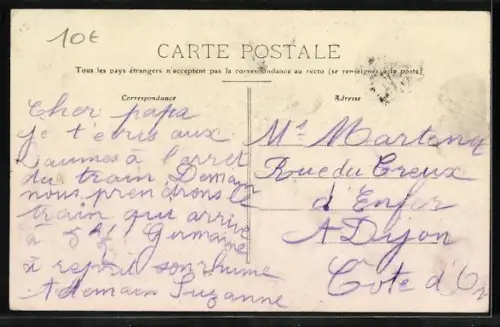 10€
CARTE POSTALE
Tous les pays étrangers n'acceptent pas la correspondance au recto (se renseigner à la poste)
Correspondance
Adresse
Cher papa
je t'ecris aux
Laumes à l'arret
du train Demain
nous prendrons le
train qui arrive
à 5 h Germaine
à reprit son rhume
A demain Suzanne
Mr Martenot
Rue du Creux
d'Enfer
A Dijon
Côte d'Or